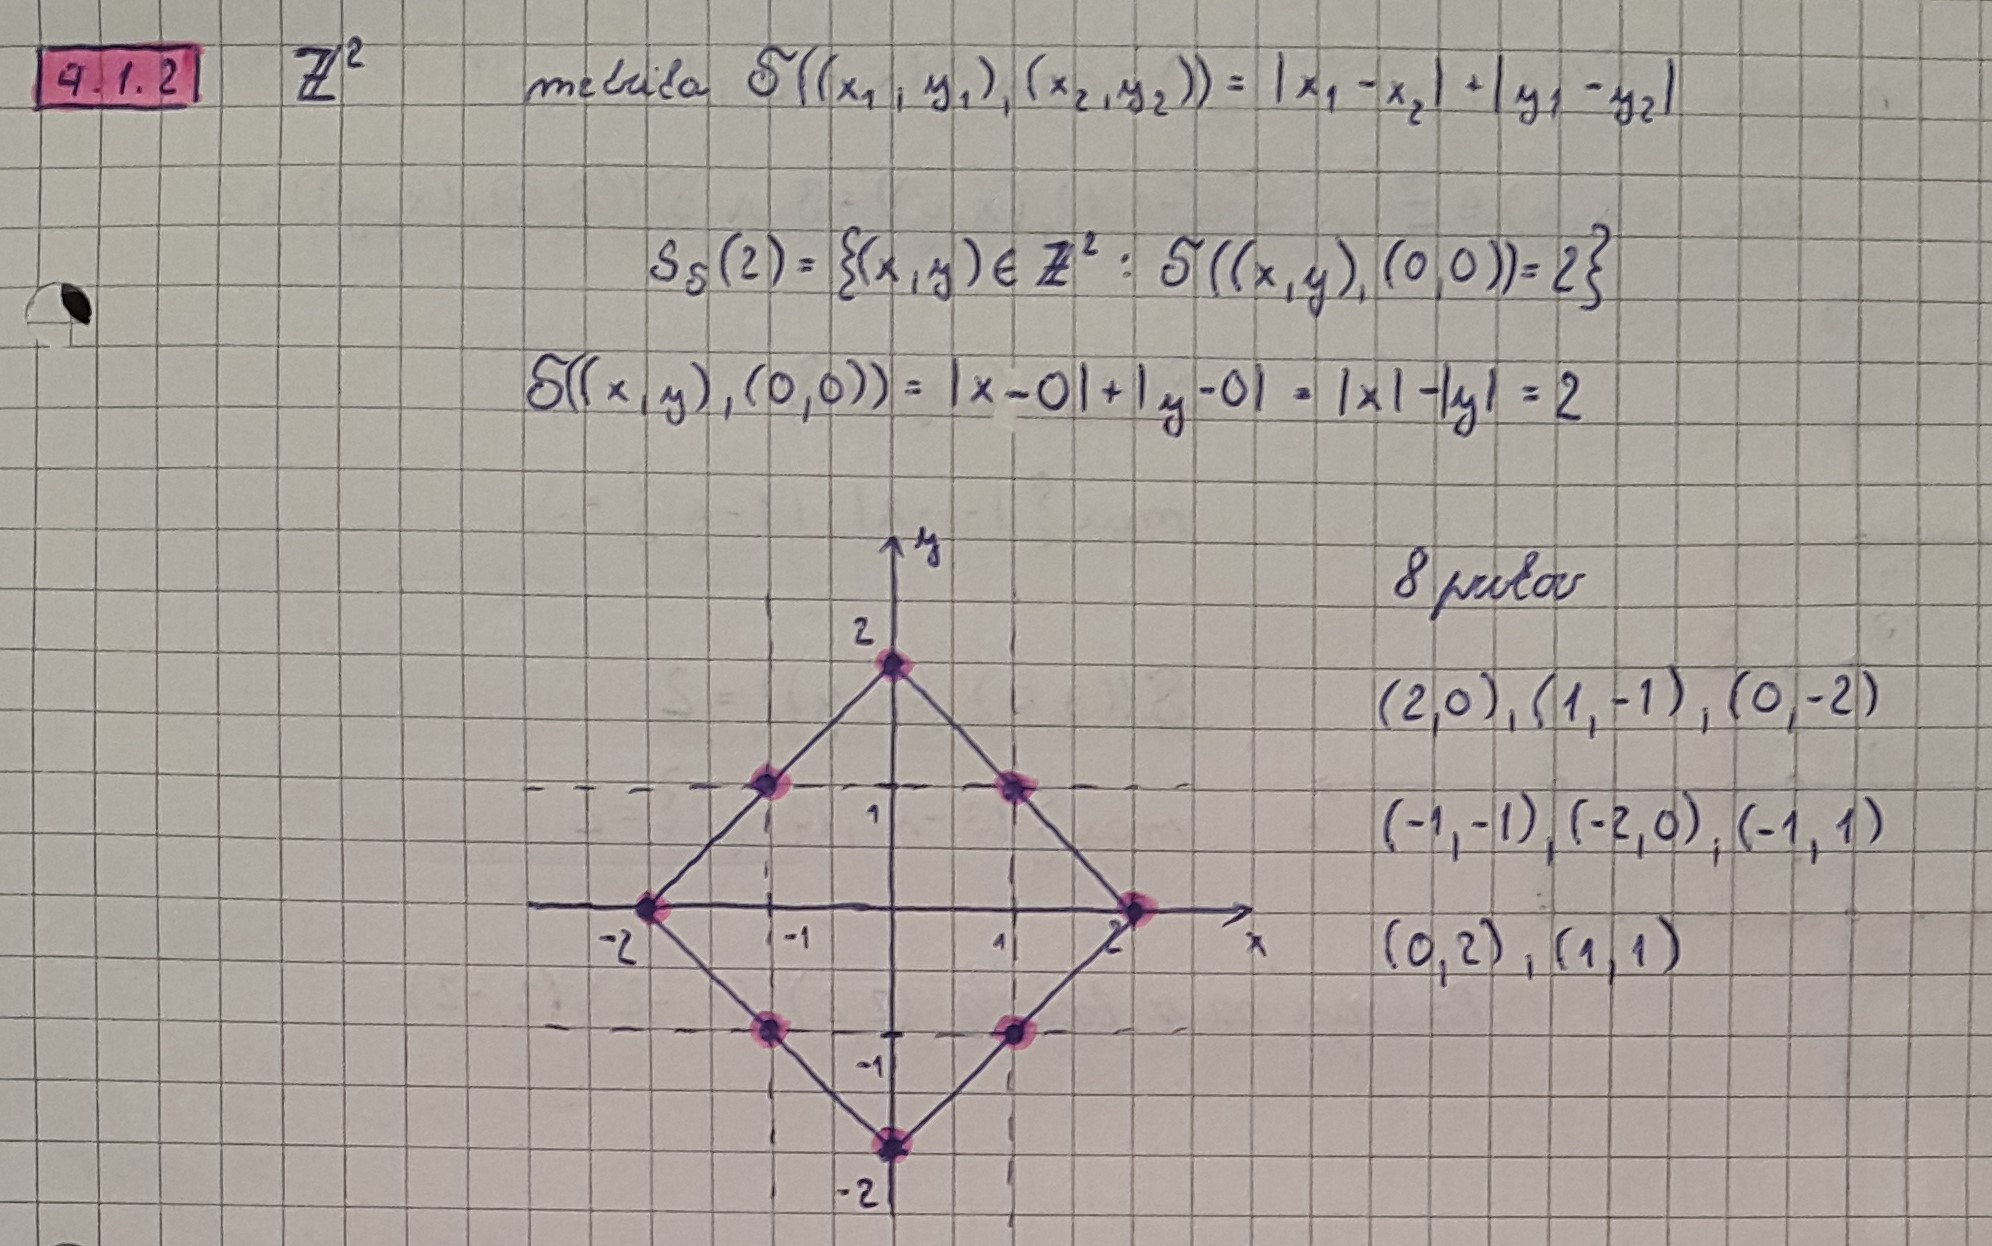 4.1.2 ℤ² metrika δ((x₁, y₁), (x₂, y₂)) = |x₁ - x₂| + |y₁ - y₂|
S_δ(2) = {(x, y) ∈ ℤ² : δ((x, y), (0, 0)) = 2}
δ((x, y), (0, 0)) = |x - 0| + |y - 0| = |x| - |y| = 2
y
2
1
-2 -1 1 2 x
-1
-2
8
(2, 0), (1, -1), (0, -2)
(-1, -1), (-2, 0), (-1, 1)
(0, 2), (1, 1)